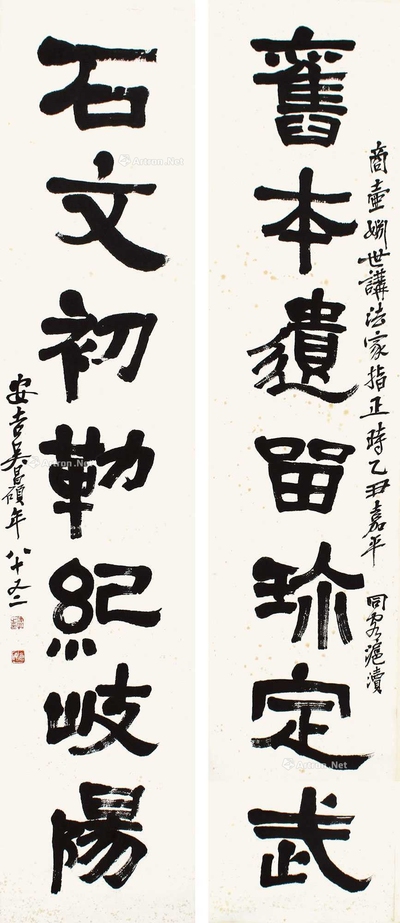 舊本遺留珎定武
商壺姻世講法家指正時乙丑嘉平 同客滬瀆
石文初勒紀岐陽
安吉吳昌碩年八十又二
Artron.Net